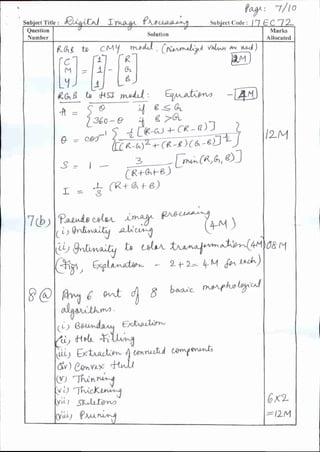 Page: 7/10
Subject Title: Digital Image Processing Subject Code: 17EC72
Question Number Solution Marks Allocated
RGB to CMY model. (Normalized values are used)
[C M Y] = [1 1 1] - [R G B] 2M
RGB to HSI model: Equations - 4M
H = { θ if B ≤ G
360-θ if B > G
θ = cos⁻¹ { ½ [(R-G) + (R-B)] / [(R-G)² + (R-B)(G-B)]^½ } 12M
S = 1 - 3/(R+G+B) [min(R,G,B)]
I = 1/3 (R+G+B)
7(b) Pseudo color image processing
(i) Intensity slicing (4M)
(ii) Intensity to color transformation (4M) 08M
(Fig, Explanation - 2+2= 4M for each)
8(a) Any 6 out of 8 basic morphological
algorithms.
(i) Boundary Extraction
(ii) Hole Filling
(iii) Extraction of connected components
(iv) Convex Hull
(v) Thinning
(vi) Thickening
(vii) Skeletons 6X2
(viii) Pruning =12M